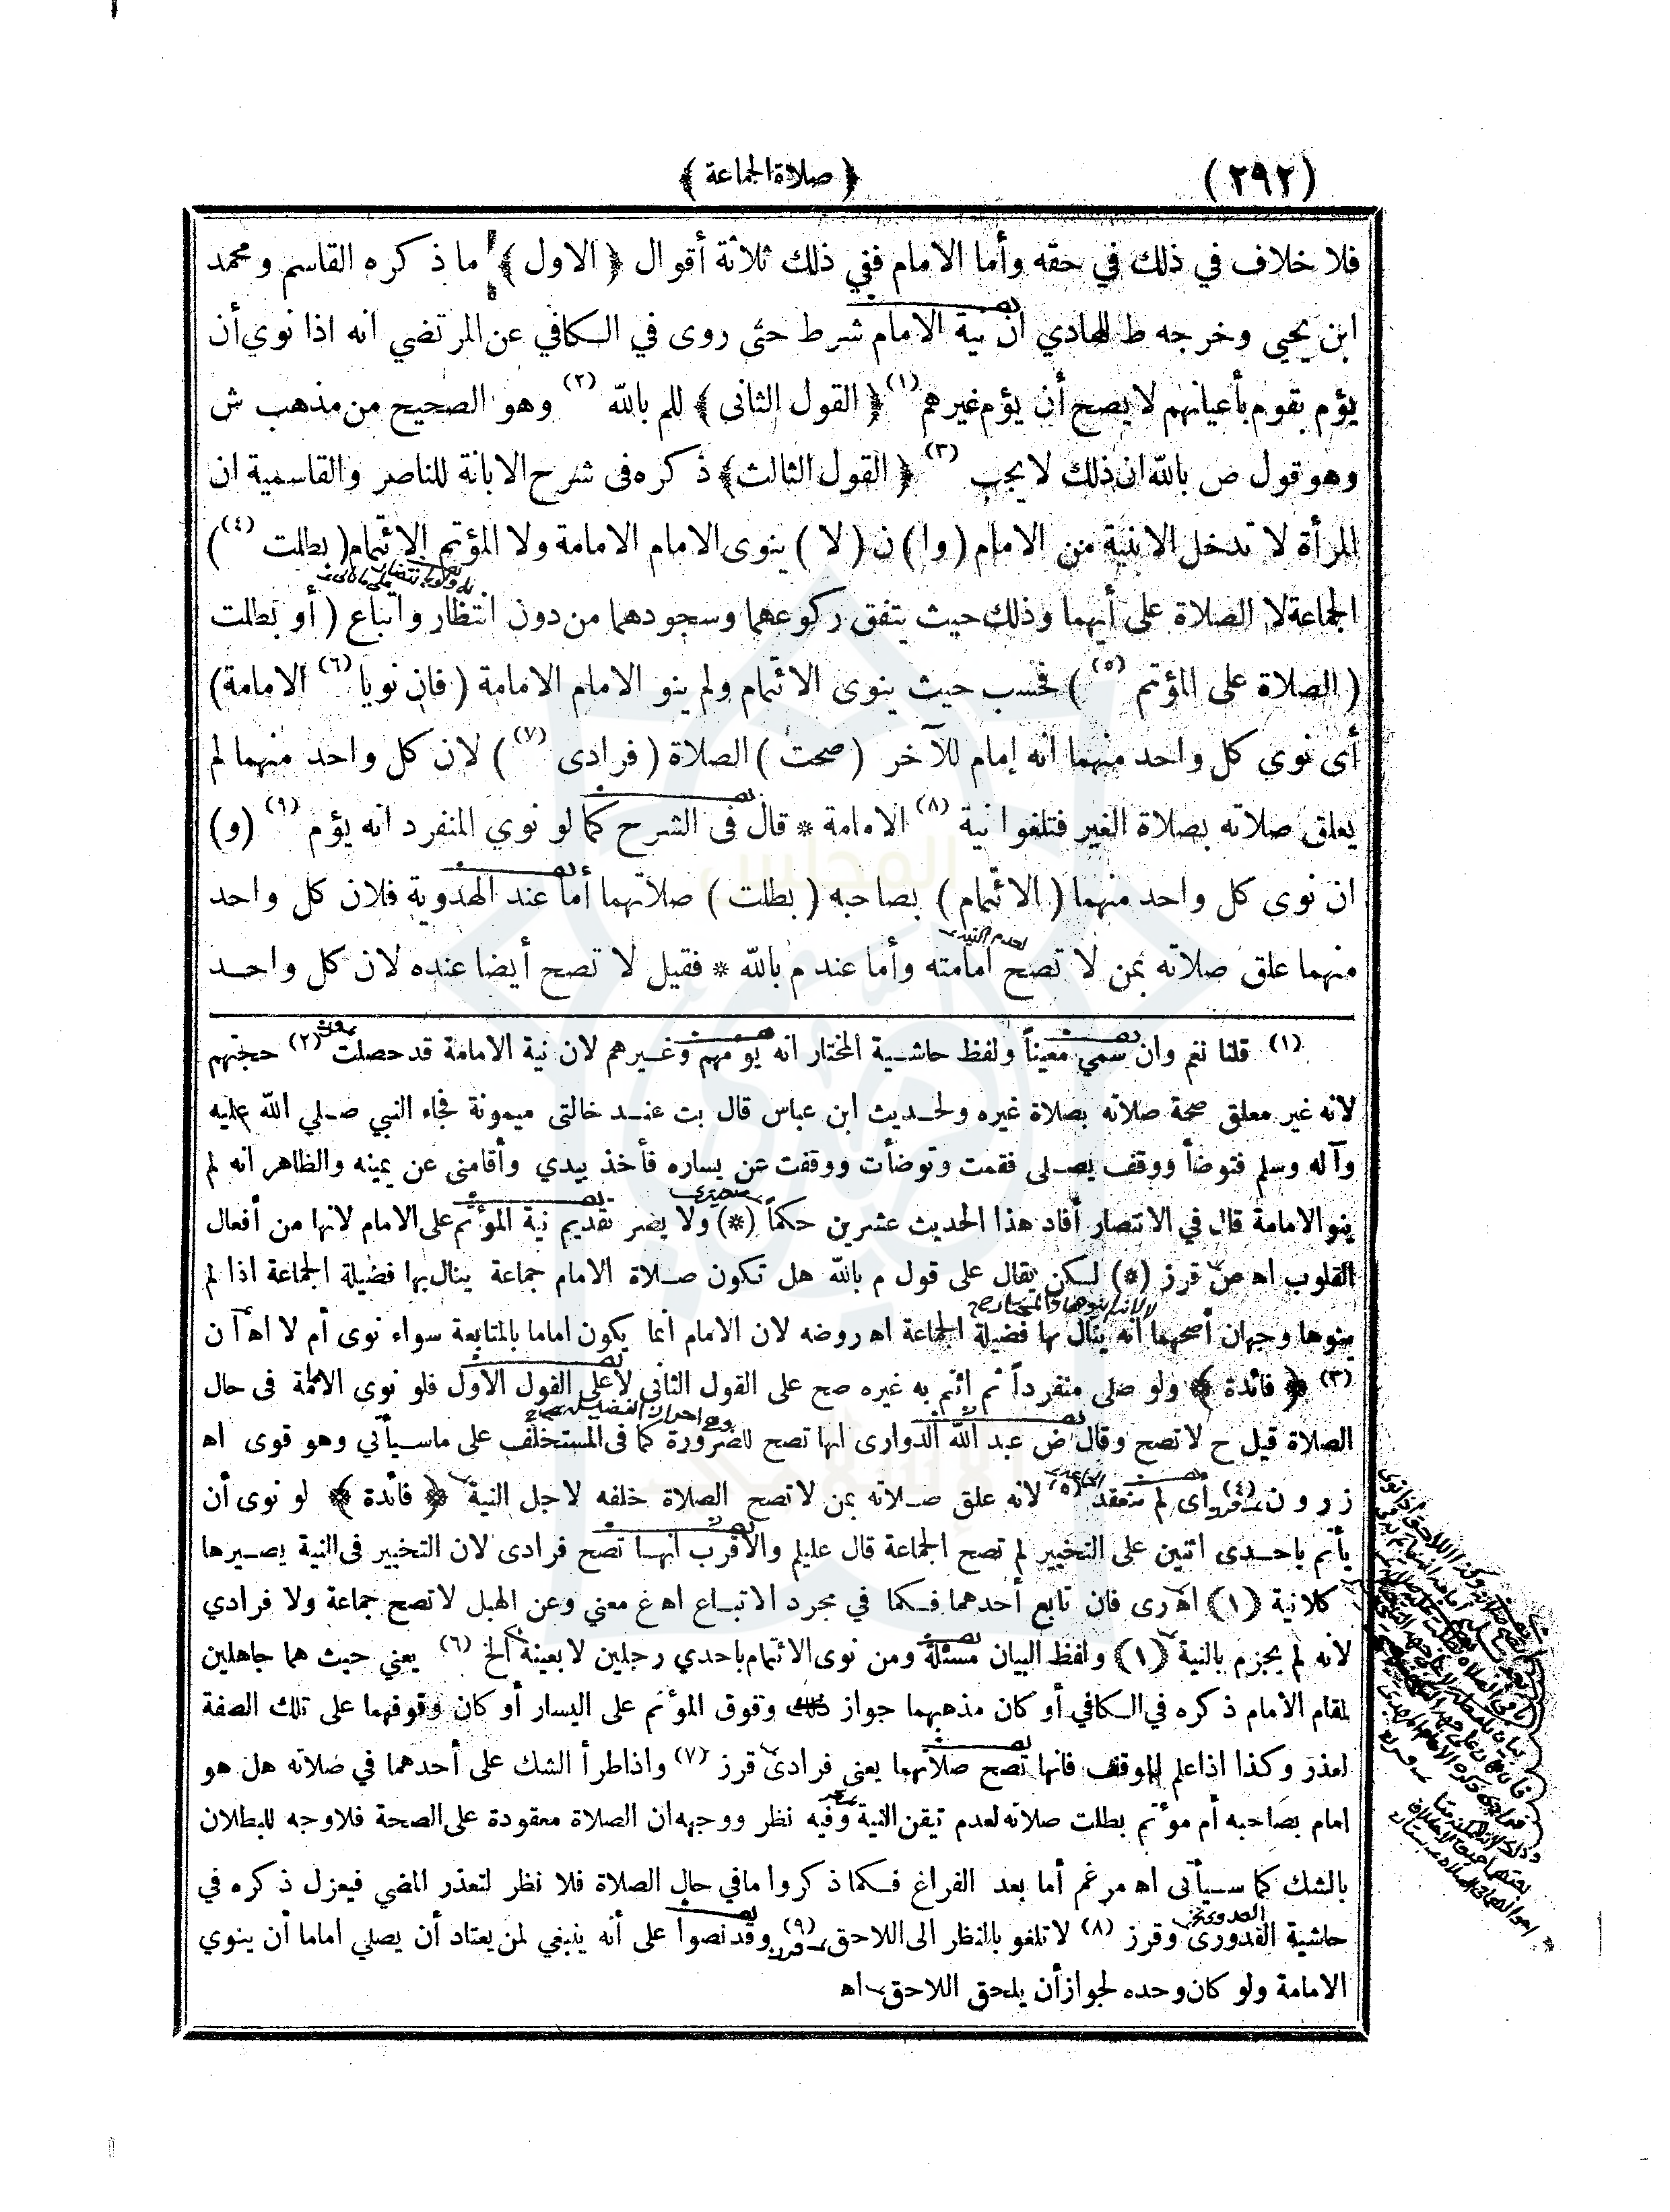 (٢٩٢) ﴿ صلاة الجماعة ﴾
فلا خلاف في ذلك في حقه وأما الامام ففي ذلك ثلاثة أقوال ﴿ الاول ﴾ ما ذكره القاسم ومحمد
ابن يحيى وخرجه ط للهادي ان نية الامام شرط حتى روى في الكافي عن المرتضي انه اذا نوي أن
يؤم بقوم بأعيانهم لا يصح أن يؤم غيرهم (١) ﴿ القول الثانى ﴾ للم بالله (٢) وهو الصحيح من مذهب ش
وهو قول ص بالله ان ذلك لا يجب (٣) ﴿ القول الثالث ﴾ ذكره فى شرح الابانة للناصر والقاسمية ان
المرأة لا تدخل الا بنية من الامام (وا) ن (لا) ينوى الامام الامامة ولا المؤتم الائتمام (بطلت (٤))
الجماعة لا الصلاة على أيهما وذلك حيث يتفق ركوعهما وسجودهما من دون انتظار واتباع (أو بطلت
(الصلاة على المؤتم (٥)) فحسب حيث ينوى الائتمام ولم ينو الامام الامامة (فان نويا (٦) الامامة)
أى نوي كل واحد منهما انه إمام للآخر (صحت) الصلاة (فرادى (٧)) لان كل واحد منهما لم
يعلق صلاته بصلاة الغير فتلغوا نية (٨) الامامة * قال فى الشرح كما لو نوي المنفرد انه يؤم (٩) (و)
ان نوى كل واحد منهما (الائتمام) بصاحبه (بطلت) صلاتهما أما عند الهدوية فلان كل واحد
لعدم النية
منهما علق صلاته بمن لا تصح امامته وأما عند م بالله * فقيل لا تصح أيضا عنده لان كل واحد
(١) قلنا نعم وان سمي معيناً ولفظ حاشية المختار انه يؤمهم وغيرهم لان نية الامامة قد حصلت (٢) حجتهم
لانه غير معلق صحة صلاته بصلاة غيره ولحديث ابن عباس قال بت عند خالتى ميمونة فجاء النبي صلي الله عليه
وآله وسلم فتوضأ ووقف يصلى فقمت وتوضأت ووقفت عن يساره فأخذ بيدي وأقامنى عن يمينه والظاهر انه لم
ينو الامامة قال في الانتصار أفاد هذا الحديث عشرين حكماً (*) ولا يضر تقديم نية المؤتم على الامام لانها من أفعال
القلوب اه ص قرز (*) لكن يقال على قول م بالله هل تكون صلاة الامام جماعة ينال بها فضيلة الجماعة اذا لم
ينوها وجهان أصحهما انه ينال بها فضيلة الجماعة اه روضه لان الامام انما يكون اماما بالمتابعة سواء نوى أم لا اه ن
(٣) ﴿ فائدة ﴾ ولو صلى منفرداً ثم ائتم به غيره صح على القول الثانى لا على القول الاول فلو نوى الامامة فى حال
الصلاة قيل ح لا تصح وقال ض عبد الله الدوارى انها تصح للضرورة كما فى المستخلف على ما سيأتي وهو قوى اه
ز ر و ن (٤) أى لم تنعقد (٥) لانه علق صلاته بمن لا تصح الصلاة خلفه لاجل النية ﴿ فائدة ﴾ لو نوى أن
يأتم باحدى اثنين على التخيير لم تصح الجماعة قال عليلم والاقرب انها تصح فرادى لان التخيير فى النية يصيرها
كلانية (١) اه رى فان تابع أحدهما فكما في مجرد الاتباع اه غ معني وعن الهبل لا تصح جماعة ولا فرادي
لأنه لم يجزم بالنية (١) ولفظ البيان مسئلة ومن نوى الائتمام باحدي رجلين لا بعينه الخ (٦) يعني حيث هما جاهلين
لمقام الامام ذكره في الكافي أو كان مذهبهما جواز ذلك وقوف المؤتم على اليسار أو كان وقوفهما على تلك الصفة
لعذر وكذا اذا علم الموقف فانها تصح صلاتهما يعنى فرادى قرز (٧) واذا طرأ الشك على أحدهما في صلاته هل هو
امام بصاحبه أم مؤتم بطلت صلاته لعدم تيقن النية وفيه نظر ووجهه ان الصلاة معقودة على الصحة فلا وجه للبطلان
بالشك كما سيأتى اه مرغم أما بعد الفراغ فكما ذكروا ما في حال الصلاة فلا نظر لتعذر المضي فيعزل ذكره في
حاشية القدورى وقرز (٨) لا تلغو بالنظر الى اللاحق قرز (٩) وقد نصوا على أنه ينبغي لمن يعتاد أن يصلي اماما أن ينوي
الامامة ولو كان وحده لجواز أن يلحق اللاحق اه